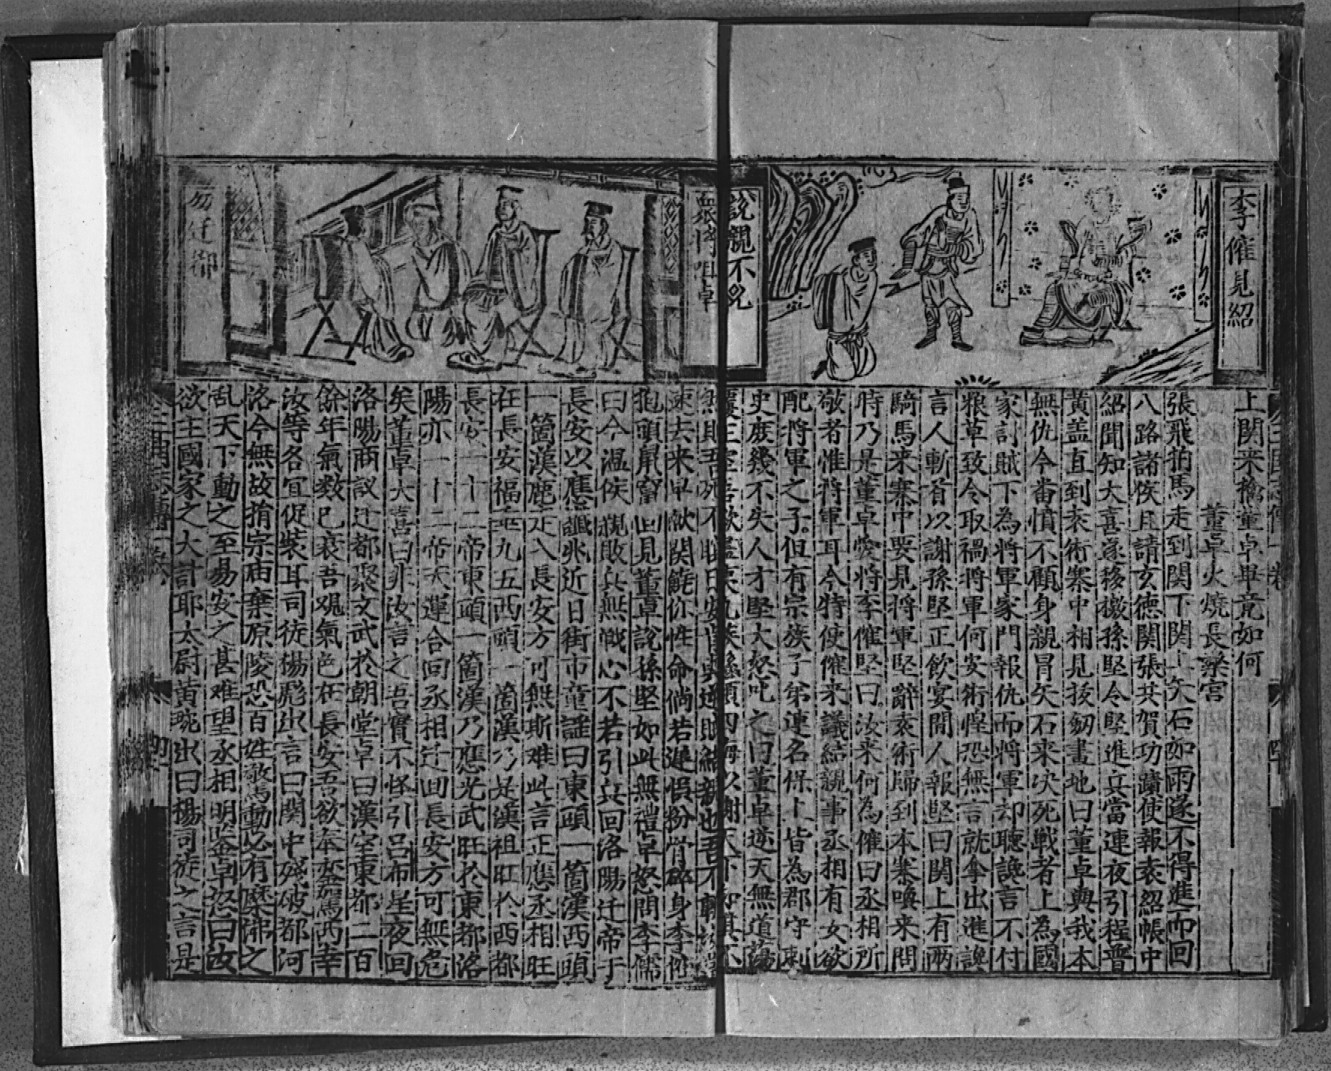 李傕見紹
說親不允
上関来擒董卓畢竟如何
董卓火燒長樂宫
張飛拍馬走到関下関上矢石如雨遂不得進而回
八路諸侯且請玄德関張共賀功蹟使報袁紹帳中
紹聞知大喜遂移檄孫堅令堅進兵當連夜引程普
黄蓋直到袁術寨中相見拔劒畫地曰董卓與我本
無仇今畨憤不顧身親冒矢石来决死戰者上為國
家討賊下為將軍家門報仇而將軍却聽讒言不付
粮草致令取禍將軍何安術惶恐無言就拿出進讒
言人斬首以謝孫堅正飲宴間人報堅曰関上有兩
騎馬来寨中要見將軍堅辭袁術歸到本寨喚来問
時乃是董卓愛將李傕堅曰汝来何為傕曰丞相所
敬者惟將軍耳今特使傕来議結親事丞相有女欲
配將軍之子但有宗族子弟連名保上皆為郡守刺
史庶幾不失人才堅大怒叱之曰董卓逆天無道蕩
速去来早献関饒你性命倘若遲悞粉骨碎身李傕
抱頭鼠竄回見董卓說孫堅如此無禮卓怒問李儒
曰今温侯親敗兵無戰心不若引兵回洛陽迁帝于
長安以應讖兆近日街市童謡曰東頭一箇漢西頭
一箇漢鹿走入長安方可無斯难此言正應丞相旺
在長安福
長安一十二帝東頭一箇漢乃應光武旺於東都洛
陽亦一十二帝天運合回丞相迁回長安方可無危
矣董卓大喜曰非汝言之吾實不悟引呂布星夜回
洛陽商議迁都聚文武於朝堂卓曰漢室東都二百
餘年氣数已衰吾观氣色在長安吾欲奉鑾駕西幸
汝等各宜促裝耳司徒楊彪出言曰関中殘破都河
洛今無故捐宗庙棄原陵恐百姓驚動必有糜沸之
乱天下動之至易安之甚难望丞相明鉴卓怒曰故
欲主國家之大計耶太尉黄琬出曰楊司徒之言是